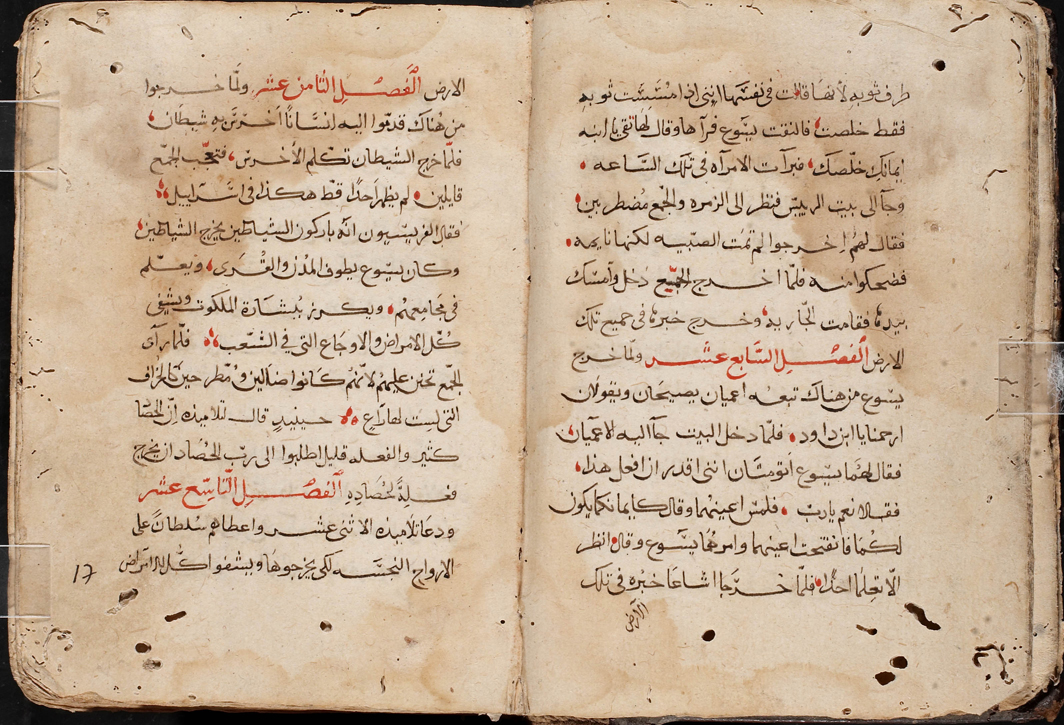 طرف ثوبه لأنها قالت في نفسها انني اذا مسست ثوبه
فقط خلصت فالتفت يسوع فرآها وقال لها ثقي يا ابنه
ايمانك خلصك فبرات الامرآه في تلك الساعه
وجآ الى بيت الرييس فنظر الى الزمره والجمع مضطربين
فقال لهم اخرجوا لم تمت الصبيه لكنها نايمه
فضحكوا منه فلمّا اخرج الجميع دخل وآمسك
بيدها فقامت الجاريه وخرج خبرها في جميع تلك
الارض الفصل السابع عشر ولما خرج
يسوع من هناك تبعه اعميان يصيحان ويقولان
ارحمنا يا ابن داود فلما دخل البيت جآ اليه الاعميان
فقال لهما يسوع اتومنان انني اقدر ان افعل هذا
فقالا نعم يارب فلمس اعينهما وقال كايمانكما يكون
لكما فانفتحت اعينهما وامرهما يسوع وقال انظر
الّا تعلما احدًا فلمّا خرجا اشاعا خبره في تلك
الارض
الارض الفصل الثامن عشر ولمّا خرجوا
من هناك قدموا اليه انسانًا اخرس به شيطان
فلمّا خرج الشيطان تكلم الأخرس فتعجّب الجمع
قايلين لم يظهر احدًا قط هكذا في اسراييل
فقال الفريسيون انّه باركون الشياطين يخرج الشياطين
وكان يسوع يطوف المدن والقرى ويعلم
في مجامعهم ويكرز ببشارة الملكوت ويشفي
كل الامراض والاوجاع التي في الشعب فلمّا رآى
الجمع تحنن عليهم لانهم كانوا ضالين ومطرحين كالخراف
التي ليست لها راع حينيدٍ قال لتلاميذه انّ الحصاد
كثير والفعله قليل اطلبوا الى ربّ الحصاد ان يخرج
فعلةً لحصاده الفصل التاسع عشر
ودعا تلاميذه الاثنى عشر واعطاهم سلطانًا على
الارواح النجسه لكي يخرجوها ويشفوا كل الامراض
17